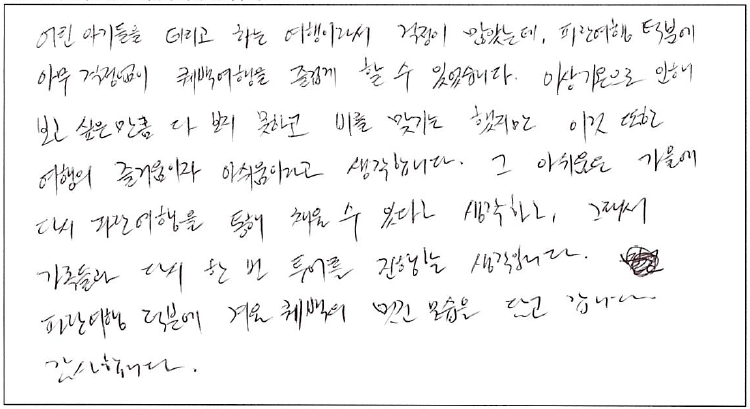 어린 아기들을 데리고 하는 여행이라서 걱정이 많았는데, 파란여행 덕분에
아무 걱정없이 퀘백여행을 즐겁게 할 수 있었습니다. 이상기온으로 인해
보고 싶은 만큼 다 보지 못하고 비를 맞기는 했지만 이것 또한
여행의 즐거움이자 아쉬움이라고 생각합니다. 그 아쉬움은 가을에
다시 파란여행을 통해 채울 수 있다고 생각하고, 그래서
가족들과 다시 한 번 투어를 진행할 생각입니다.
파란여행 덕분에 겨울 퀘백의 멋진 모습을 담고 갑니다.
감사합니다.